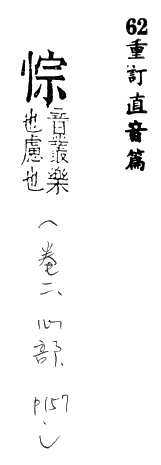 62重訂直音篇
悰音叢樂
也慮也
(卷二、心部、p157.左)